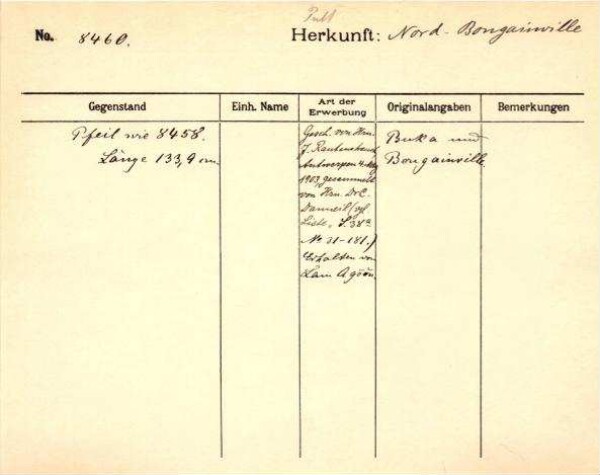 Publ
No. 8460.
Herkunft: Nord-Bougainville
Gegenstand
Einh. Name
Art der Erwerbung
Originalangaben
Bemerkungen
Pfeil wie 8458.
Länge 133,9 cm.
Gesch. von Hrn.
J. Rautenstrauch
Antwerpen
1903, gesammelt
von Hrn. Dr C.
Danneil (vgl
Liste, S. 38ª
Nr 31-181.)
Erhalten von
Lam
Buka und
Bougainville